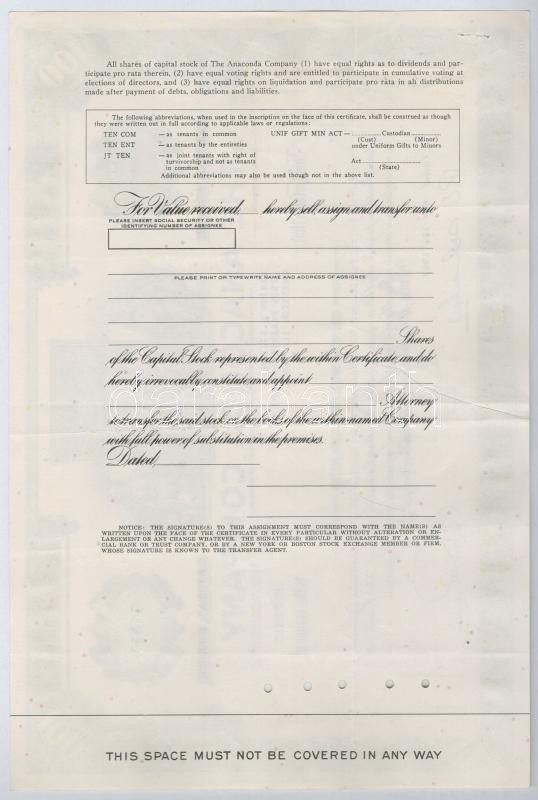 All shares of capital stock of The Anaconda Company (1) have equal rights as to dividends and par-
ticipate pro rata therein, (2) have equal voting rights and are entitled to participate in cumulative voting at
elections of directors, and (3) have equal rights on liquidation and participate pro rata in all distributions
made after payment of debts, obligations and liabilities.
The following abbreviations, when used in the inscription on the face of this certificate, shall be construed as though
they were written out in full according to applicable laws or regulations:
TEN COM — as tenants in common UNIF GIFT MIN ACT — ............Custodian............
(Cust) (Minor)
TEN ENT — as tenants by the entireties under Uniform Gifts to Minors
JT TEN — as joint tenants with right of Act........................
survivorship and not as tenants (State)
in common
Additional abbreviations may also be used though not in the above list.
For Value received, hereby sell, assign and transfer unto
PLEASE INSERT SOCIAL SECURITY OR OTHER
IDENTIFYING NUMBER OF ASSIGNEE
PLEASE PRINT OR TYPEWRITE NAME AND ADDRESS OF ASSIGNEE
Shares
of the Capital Stock represented by the within Certificate, and do
hereby irrevocably constitute and appoint
Attorney
darabanth
to transfer the said stock on the books of the within-named Company
with full power of substitution in the premises.
Dated,
NOTICE: THE SIGNATURE(S) TO THIS ASSIGNMENT MUST CORRESPOND WITH THE NAME(S) AS
WRITTEN UPON THE FACE OF THE CERTIFICATE IN EVERY PARTICULAR WITHOUT ALTERATION OR EN-
LARGEMENT OR ANY CHANGE WHATEVER. THE SIGNATURE(S) SHOULD BE GUARANTEED BY A COMMER-
CIAL BANK OR TRUST COMPANY, OR BY A NEW YORK OR BOSTON STOCK EXCHANGE MEMBER OR FIRM,
WHOSE SIGNATURE IS KNOWN TO THE TRANSFER AGENT.
THIS SPACE MUST NOT BE COVERED IN ANY WAY